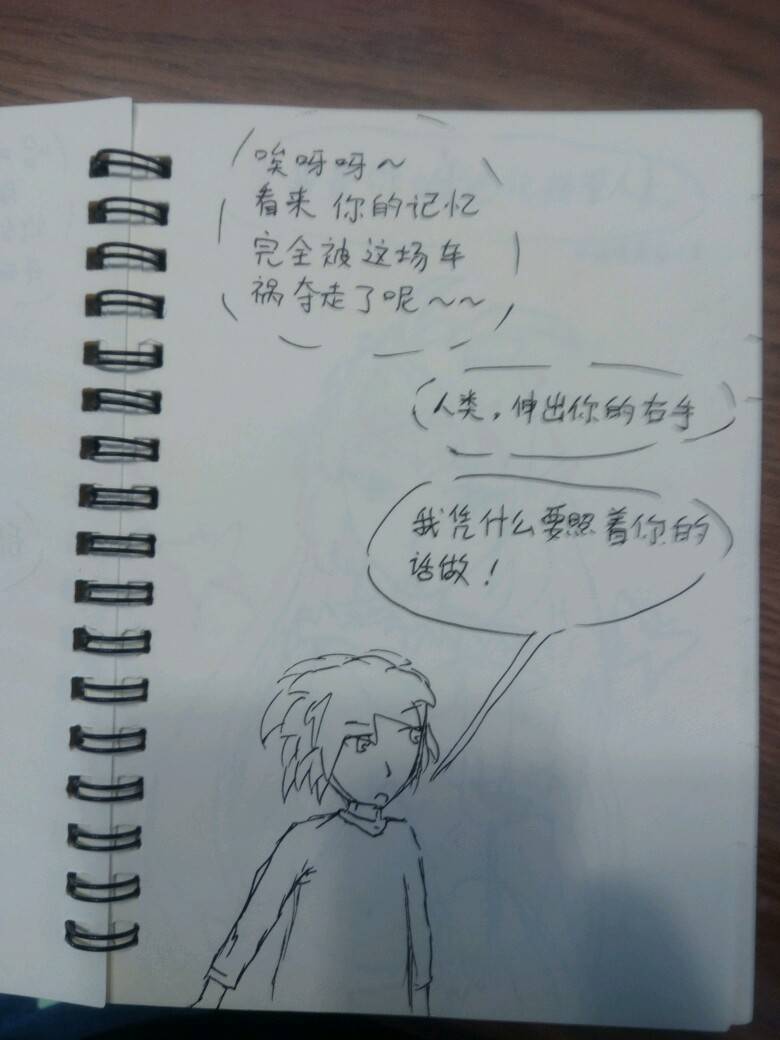 唉呀呀～
看来你的记忆
完全被这场车
祸夺走了呢～～
人类，伸出你的右手
我凭什么要照着你的
话做！